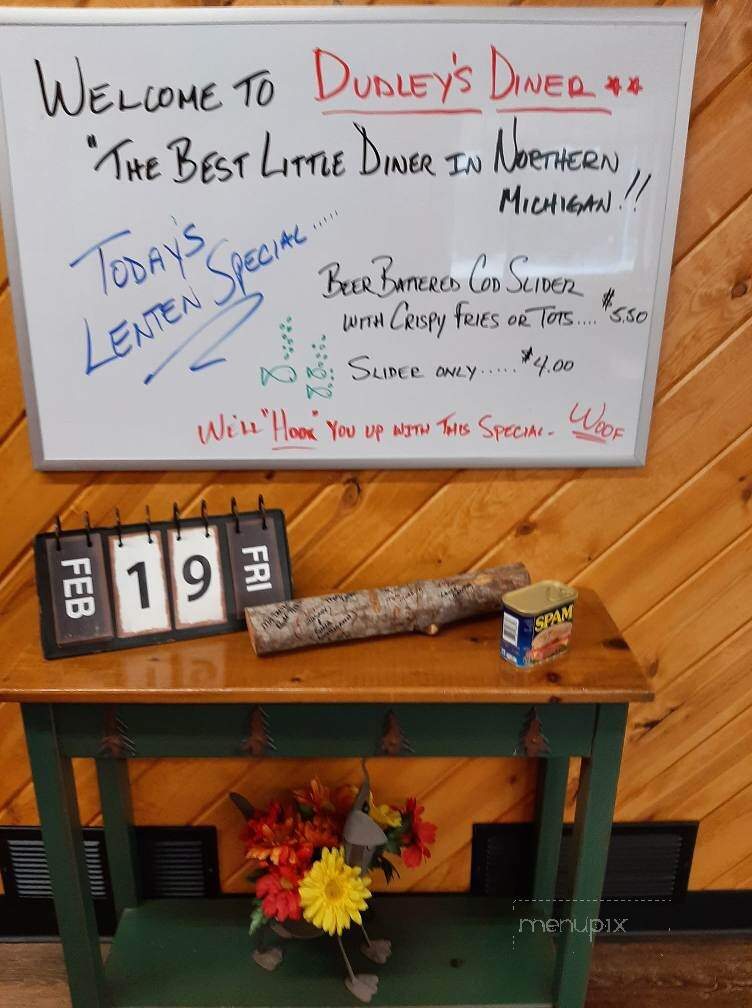 WELCOME TO DUDLEY'S DINER **
"THE BEST LITTLE DINER IN NORTHERN
MICHIGAN!!
TODAY'S
LENTEN SPECIAL.....
BEER BATTERED COD SLIDER
WITH CRISPY FRIES OR TOTS.... $5.50
SLIDER ONLY..... $4.00
WE'LL "HOOK" YOU UP WITH THIS SPECIAL- WOOF
FEB 19 FRI
SPAM
menupix